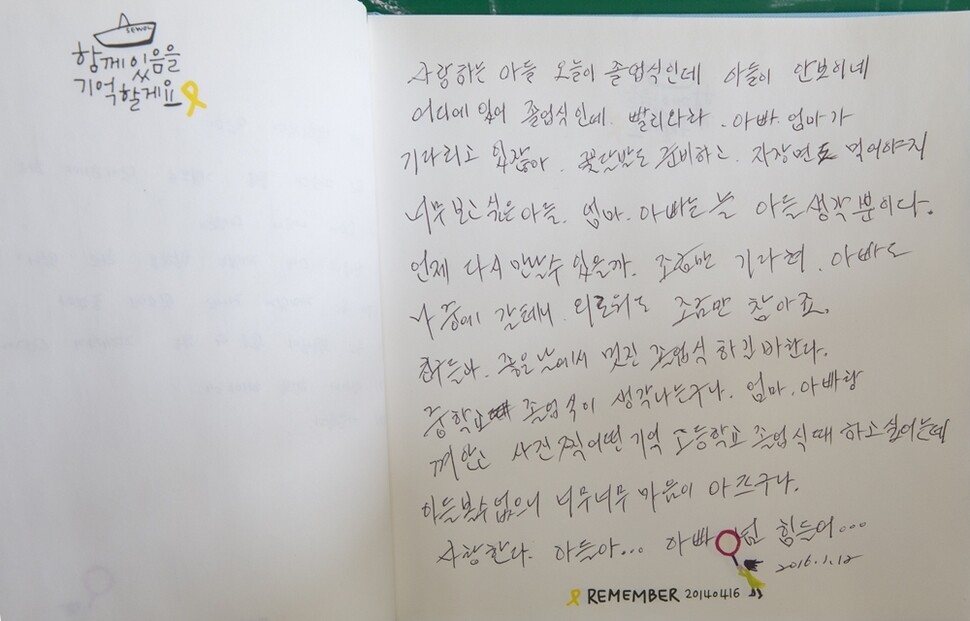 SEWOL
함께 있음을
기억할게요
사랑하는 아들 오늘이 졸업식인데 아들이 안보이네
어디에 있어 졸업식인데. 빨리와라. 아빠. 엄마가
기다리고 있잖아. 꽃다발도 준비하고. 자장면도 먹어야지
너무 보고싶은 아들. 엄마. 아빠는 늘 아들 생각 뿐이다.
언제 다시 만날수 있을까. 조금만 기다려. 아빠도
나중에 갈테니. 외로워도 조금만 참아죠.
친구들과. 좋은 날에서 멋진 졸업식 하길 바란다.
중학교때 졸업식이 생각나는구나. 엄마. 아빠랑
껴안고 사진 찍어던 기억 고등학교 졸업식때 하고싶어는데
아들볼수 없으니 너무너무 마음이 아프구나.
사랑한다. 아들아... 아빠 넘 힘들어...
2016.1.12
REMEMBER 20140416